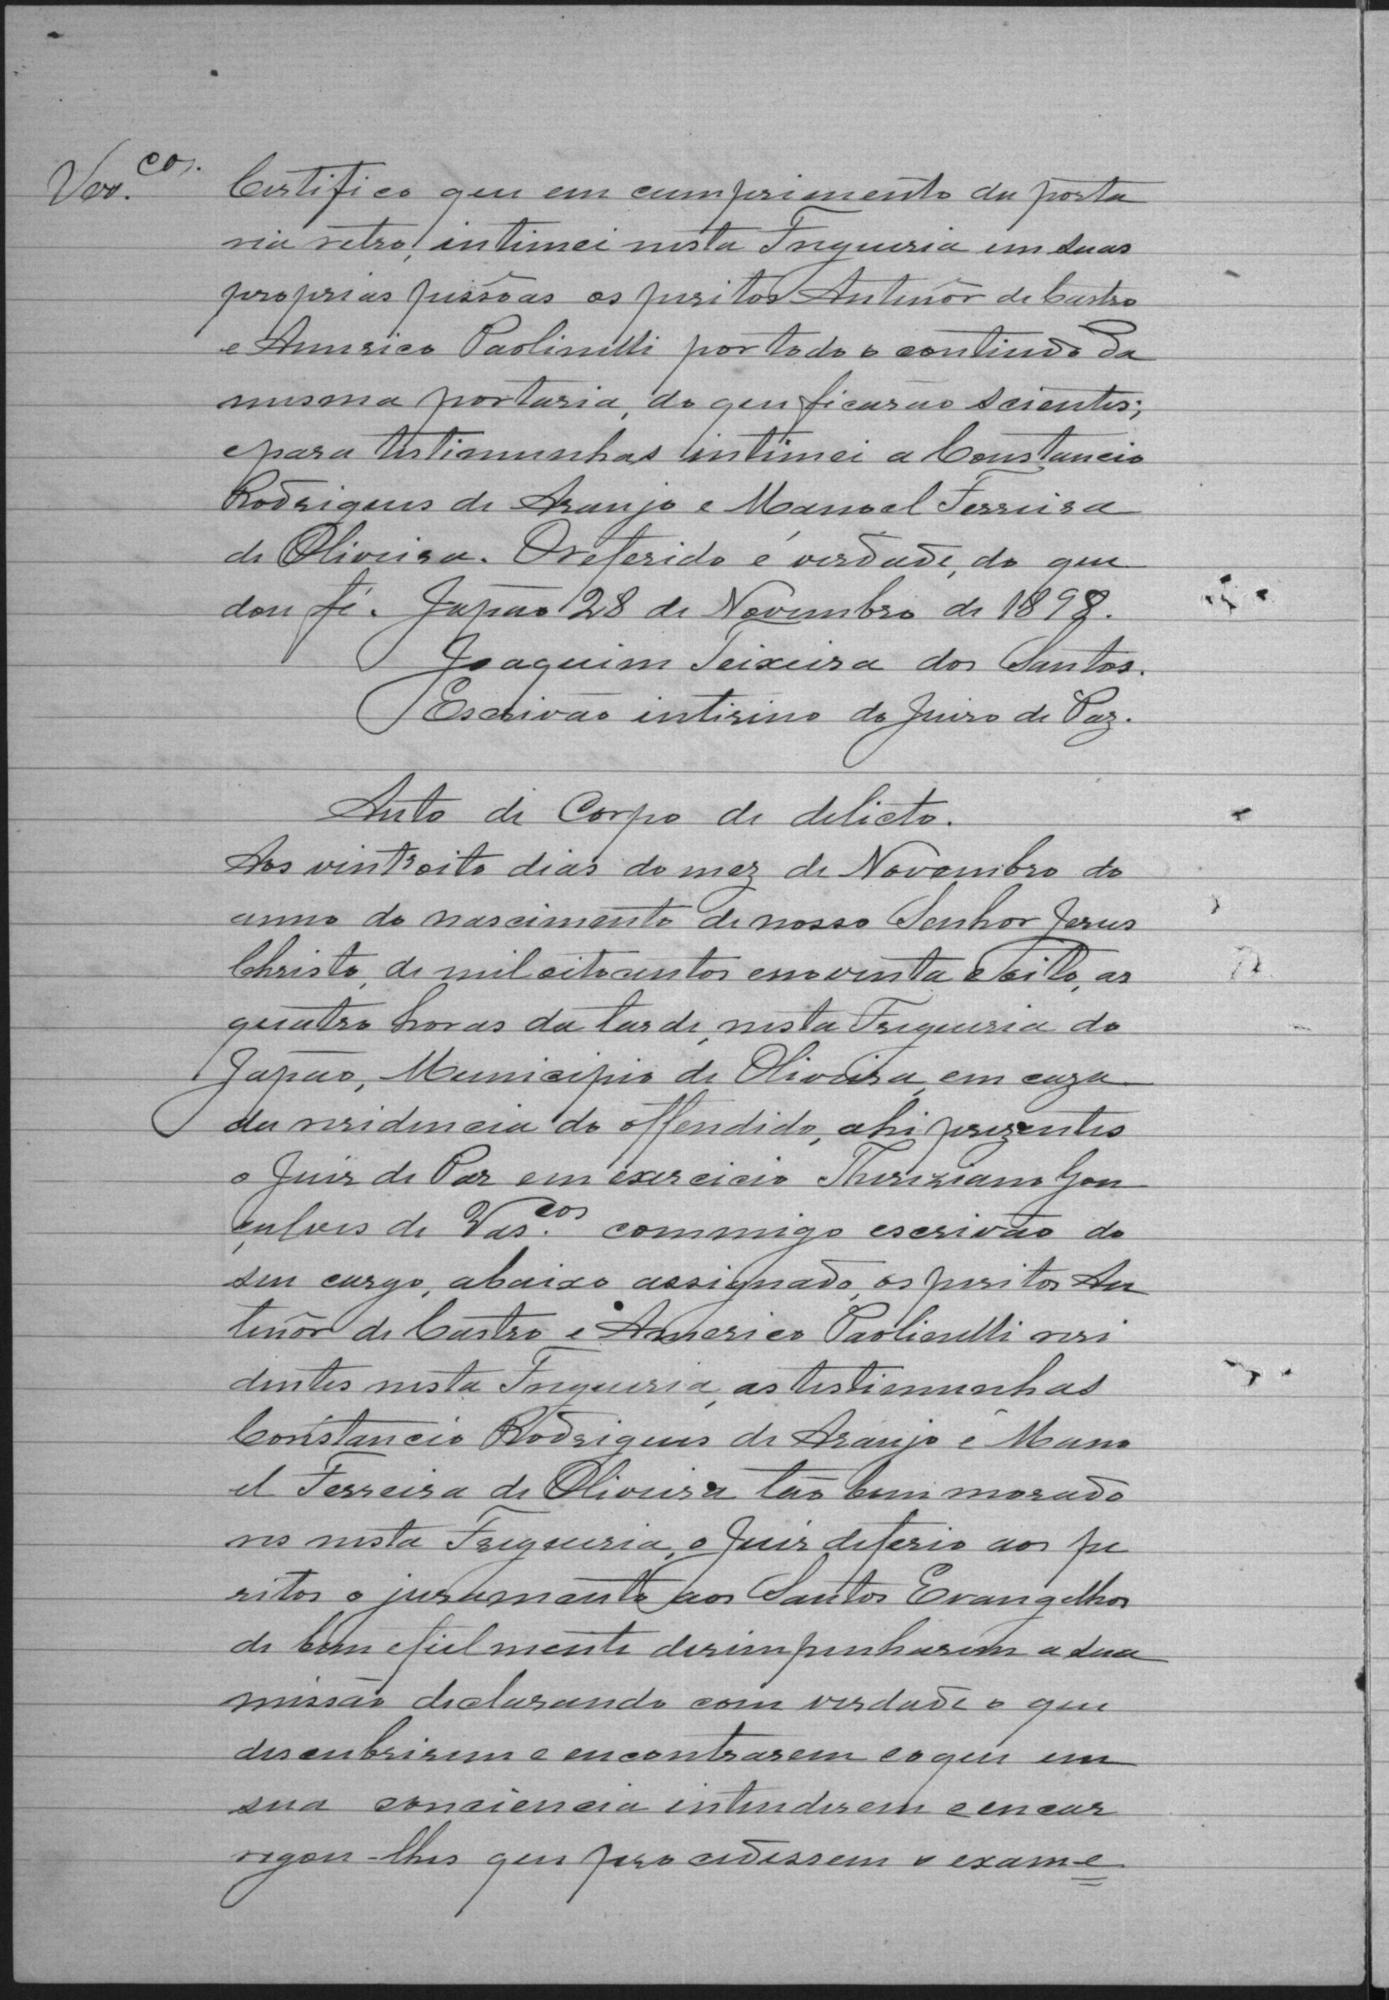 Vas.cos.
Certifico que em cumprimento da porta
ria retro, intimei nesta Fregueria em suas
proprias pessôas os peritos Antenôr de Castro
e Americo Paolinelli por todo o contiudo da
mesma portaria, do que ficarão scientes;
e para testimunhas intimei a Constancio
Rodrigues de Araujo e Manoel Ferreira
de Oliveira. O referido é verdade, do que
dou fé. Japão 28 de Novembro de 1898.
Joaquim Teixeira dos Santos.
Escrivão intirino do Juiso de Paz.
Auto de Corpo de delicto.
Aos vint'oito dias do mez de Novembro do
anno do nascimento de nosso Senhor Jesus
Christo, de mil oitocentos enoventa e oito, as
quatro horas da tarde, nesta Fregueria do
Japão, Municipio de Oliveira, em caza
da residencia do offendido, ahi prezentes
o Juis de Pas em exercicio Thereziano Gon
çalves de Vas.cos commigo escrivão do
seu cargo, abaixo assignado, os peritos An
tenôr de Castro e Americo Paolinelli resi
dentes nesta Fregueria, as testimunhas
Constancio Rodrigues de Araujo e Mano
el Ferreira de Oliveira tão bem morado
res nesta Fregueria, o Juis deferio aos pe
ritos o juramento aos Santos Evangelhos
de bem e fielmente desimpenharem a sua
missão declarando com verdade o que
descubrirem e encontrarem eoque em
sua conciencia intenderem e encar
regou-lhes que procedessem o exame